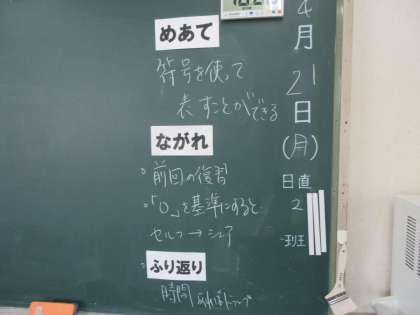 めあて
符号を使って
表すことができる
ながれ
○前回の復習
○「0」を基準にすると
セルフ→シェア
ふり返り
時間
4月21日(月)
日直
2
班